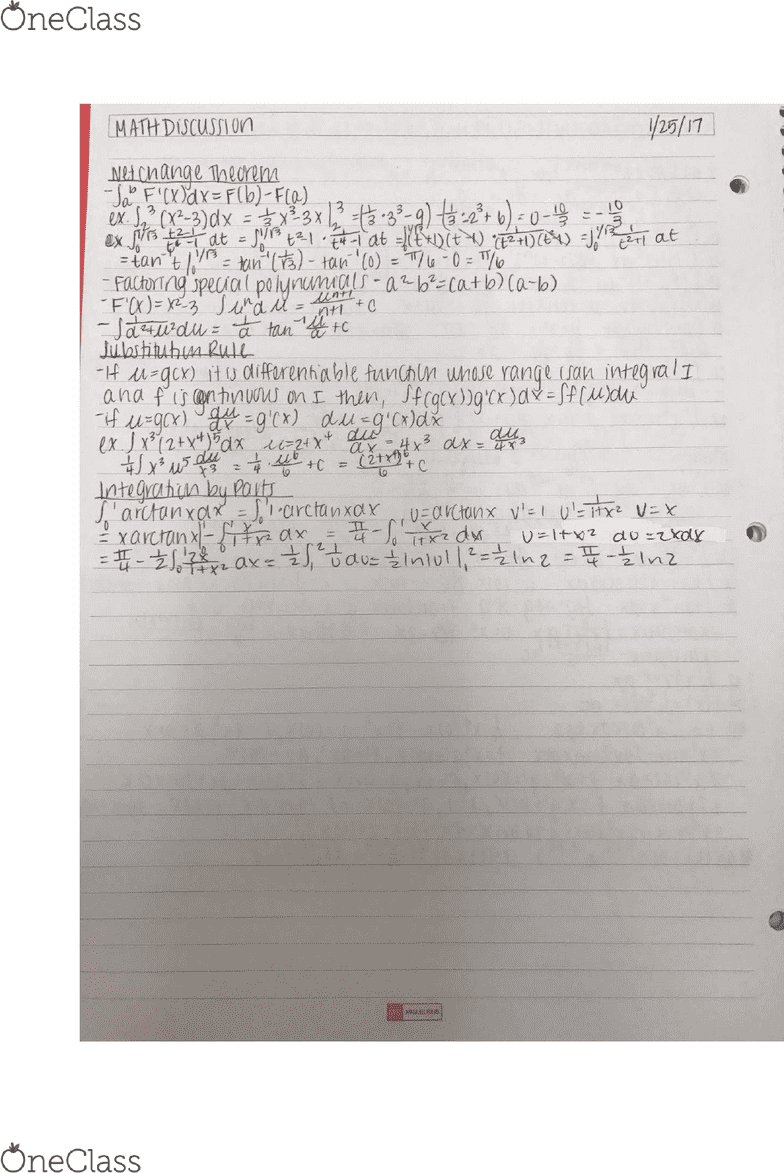 OneClass
MATH DISCUSSION 1/25/17
Net change Theorem
- ∫ₐᵇ F'(x)dx = F(b) - F(a)
ex. ∫₂³ (x²-3)dx = 1/3 x³-3x |₂³ = (1/3 · 3³ - 9) - (1/3 · 2³ + 6) = 0 - 10/3 = - 10/3
ex. ∫₀^(1/√3) (t²-1)/(t⁶-1) dt = ∫₀^(1/√3) t²-1 · 1/(t⁴-1) dt = ∫₀^(1/√3) (t+1)(t-1) · 1/((t²+1)(t²-1)) = ∫₀^(1/√3) 1/(t²+1) dt
= tan⁻¹t |₀^(1/√3) = tan⁻¹(1/√3) - tan⁻¹(0) = π/6 - 0 = π/6
- Factoring special polynomials - a²-b² = (a+b)(a-b)
- F'(x) = x²-3 ∫uⁿdu = uⁿ⁺¹/(n+1) + C
- ∫ 1/(a²+u²) du = 1/a tan⁻¹ u/a + C
Substitution Rule
- If u=g(x) it is differentiable function whose range is an integral I
and f is continuous on I then, ∫f(g(x))g'(x)dx = ∫f(u)du
- If u=g(x) du/dx = g'(x) du = g'(x)dx
ex. ∫x³(2+x⁴)⁵dx u=2+x⁴ du/dx = 4x³ dx = du/4x³
1/4 ∫x³ u⁵ du/x³ = 1/4 · u⁶/6 + C = (2+x⁴)⁶/6 + C
Integration by Parts
∫₀¹ arctanxdx = ∫₀¹ 1·arctanxdx u = arctanx v'=1 u' = 1/(1+x²) v=x
= xarctanx|₀¹ - ∫₀¹ x/(1+x²) dx = π/4 - ∫₀¹ x/(1+x²) dx u=1+x² du=2xdx
= π/4 - 1/2 ∫₀¹ 2x/(1+x²) dx = 1/2 ∫₁² 1/u du = 1/2 ln|u| |₁² = 1/2 ln2 = π/4 - 1/2 ln2
OneClass